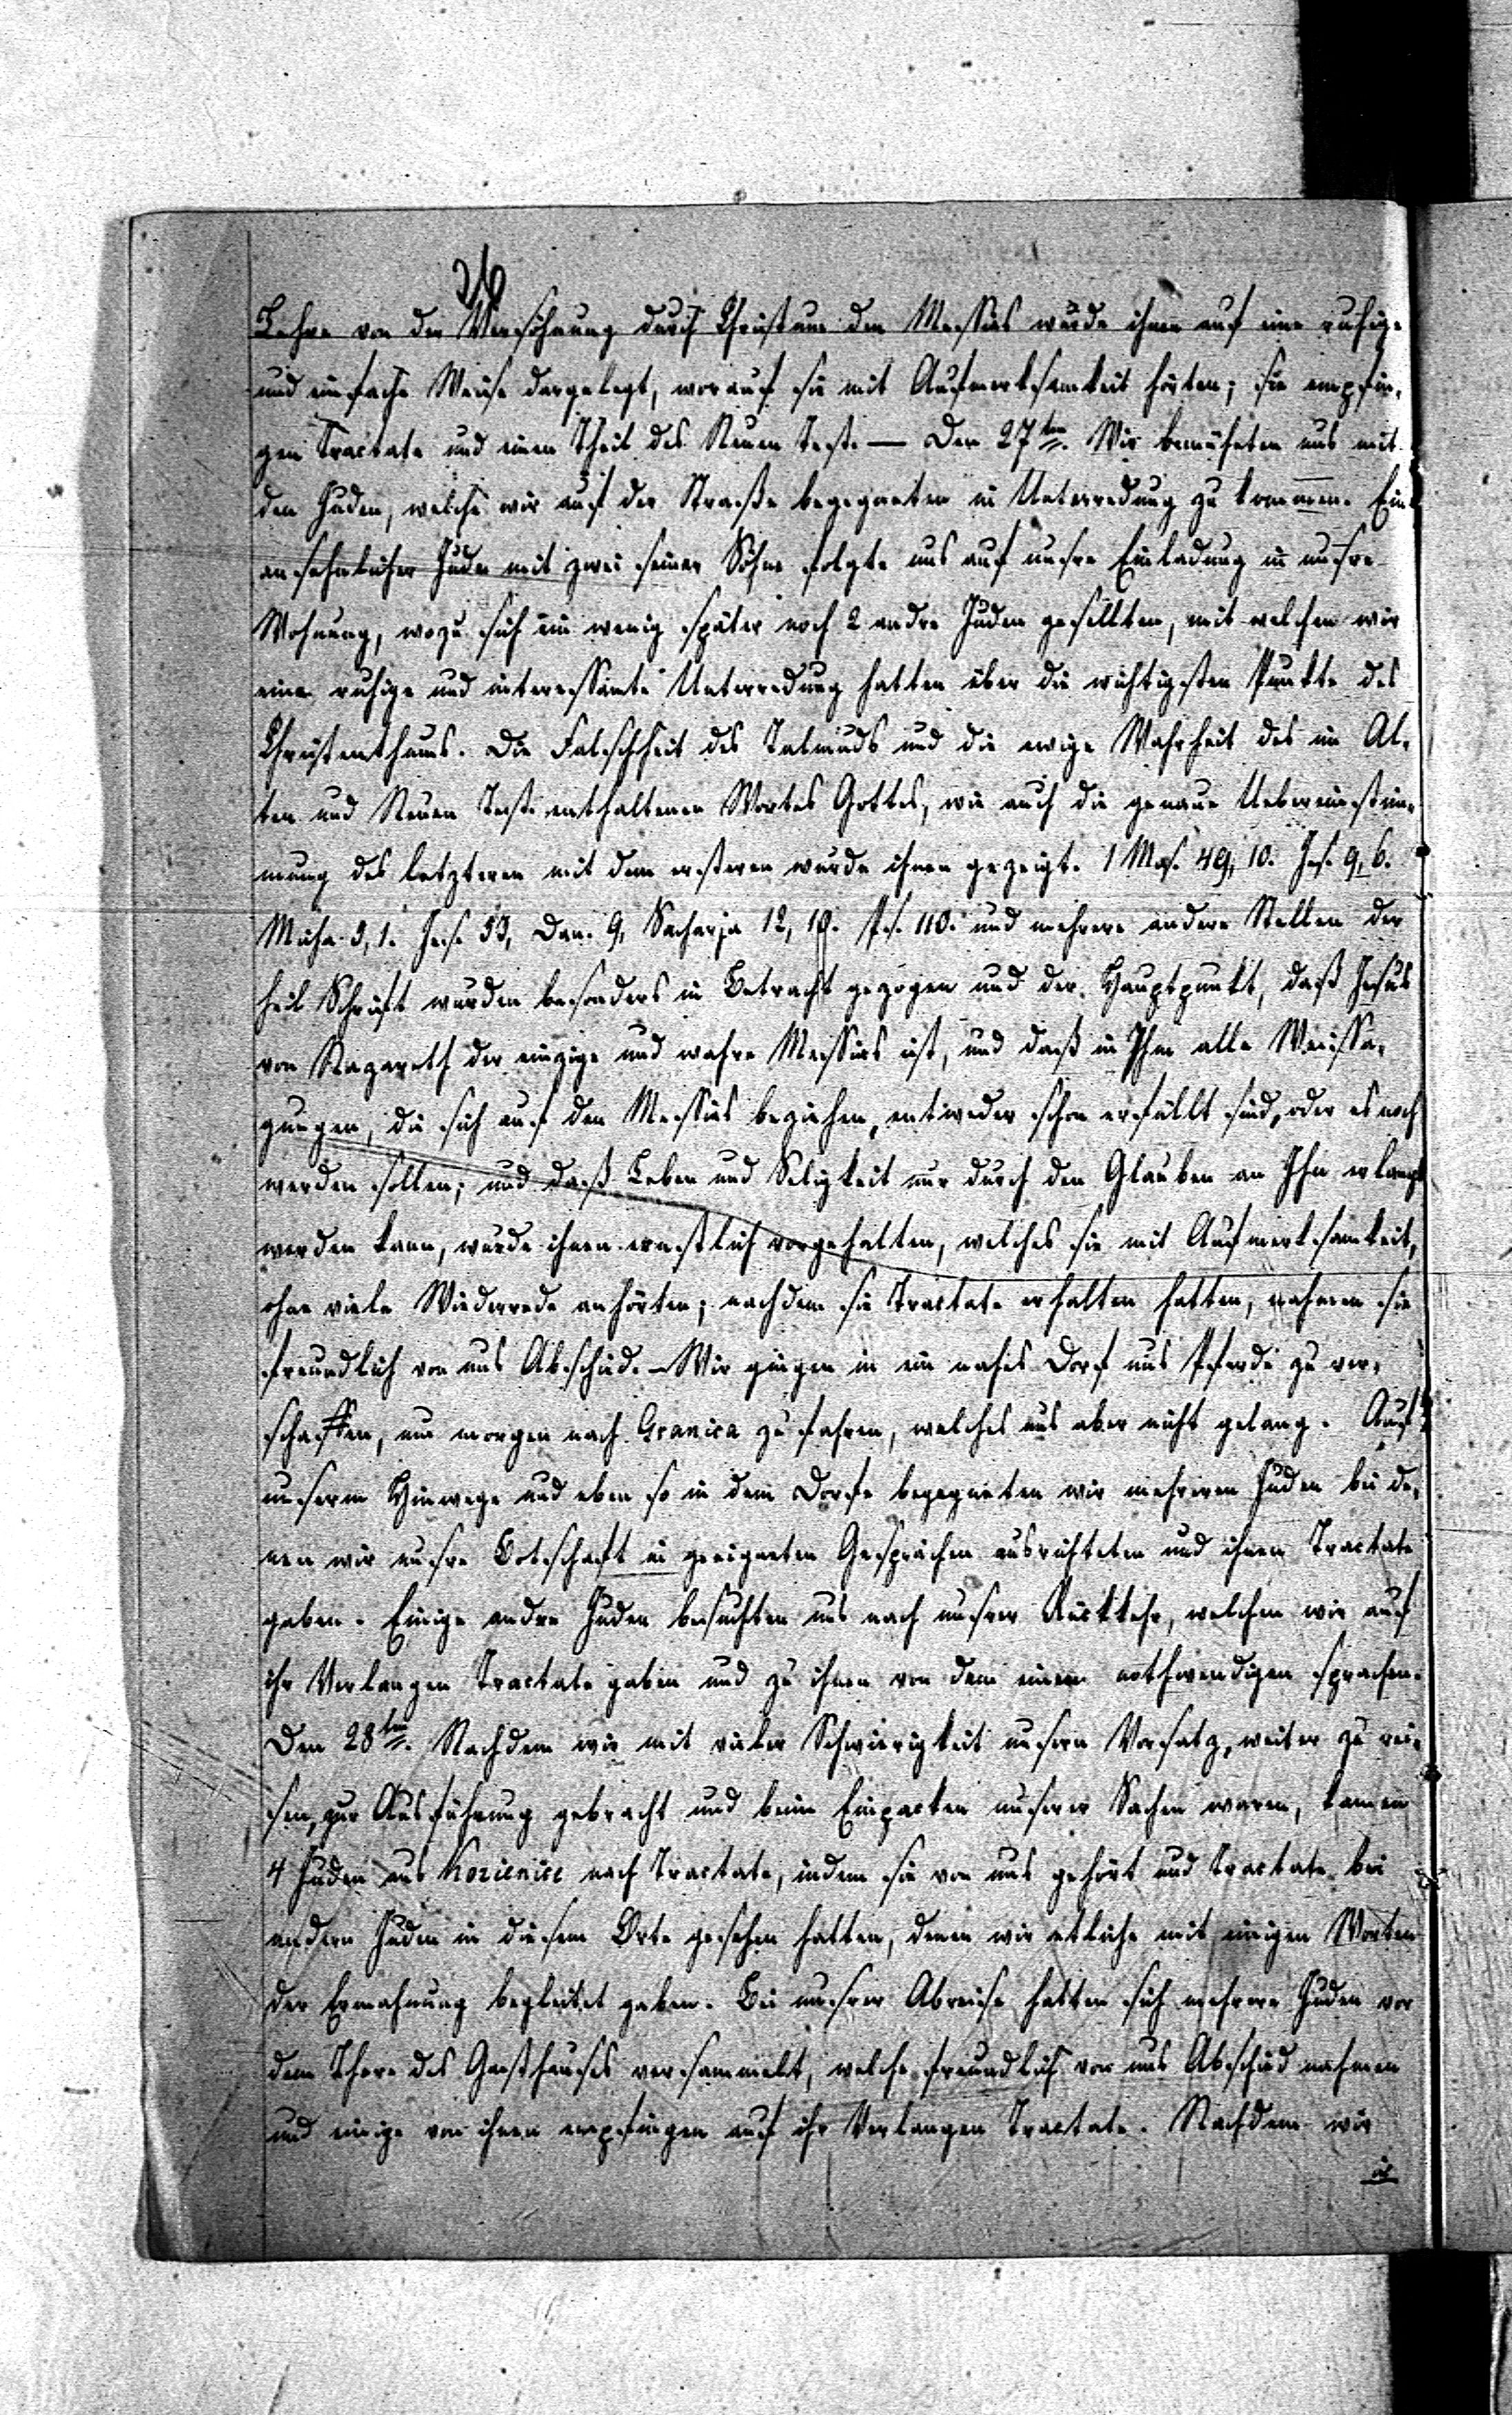 26
Lehre von der Versöhnung durch Christum den Messias wurde ihnen auf eine ruhige
und einfache Weise dargelegt, worauf sie mit Aufmerksamkeit hörten; sie empfin-
gen Tractate und einen Theil des Neuen Test. — Den 27ten. Wir bemühten uns mit
den Juden, welche wir auf der Straße begegneten in Unterredung zu kommen. Ein
ansehnlicher Jude mit zwei seiner Söhne folgte uns auf unsre Einladung in unsre
Wohnung, wozu sich ein wenig später noch 2 andre Juden gesellten, mit welchen wir
eine ruhige und interessante Unterredung hatten über die wichtigsten Punkte des
Christenthums. Die Falschheit des Talmuds und die ewige Wahrheit des im Al-
ten und Neuen Test. enthaltenen Wortes Gottes, wie auch die genaue Uebereinstim-
mung des letzteren mit dem ersteren wurde ihnen gezeigt. 1 Mos. 49, 10. Jes. 9, 6.
Micha 5, 1. Jes. 53, Dan. 9, Sacharja 12, 10. Ps. 110. und mehrere andere Stellen der
heil Schrift wurden besonders in Betracht gezogen und der Hauptpunkt, daß Jesus
von Nazareth der einzige und wahre Messias ist, und daß in Ihm alle Weissa-
gungen, die sich auf den Messias beziehen, entweder schon erfüllt sind, oder es noch
werden sollen; und daß Leben und Seligkeit nur durch den Glauben an Ihn erlangt
werden kann, wurde ihnen ernstlich vorgehalten, welches sie mit Aufmerksamkeit,
ohne viele Wiederrede anhörten; nachdem sie Tractate erhalten hatten, nahmen sie
freundlich von uns Abschied. – Wir gingen in ein nahes Dorf uns Pferde zu ver-
schaffen, um morgen nach Granica zu fahren, welches uns aber nicht gelang. Auf
unserm Hinwege und eben so in dem Dorfe begegneten wir mehreren Juden bei de-
nen wir unsre Botschaft in geeigneten Gesprächen ausrichteten und ihnen Tractate
gaben. Einige andre Juden besuchten uns nach unsrer Rückkehr, welchen wir auf
ihr Verlangen Tractate gaben und zu ihnen von dem einen nothwendigen sprachen.
Den 28ten. Nachdem wir mit vieler Schwierigkeit unsern Vorsatz, weiter zu rei-
sen, zur Ausführung gebracht und beim Einpacken unserer Sachen waren, kamen
4 Juden aus Kozienice nach Tractate, indem sie von uns gehört und Tractate bei
andern Juden in diesem Orte gesehen hatten, denen wir etliche mit einigen Worten
der Ermahnung begleitet gaben. Bei unsrer Abreise hatten sich mehrere Juden vor
dem Thore des Gasthauses versammelt, welche freundlich von uns Abschied nahmen
und einige von ihnen empfingen auf ihr Verlangen Tractate. Nachdem wir